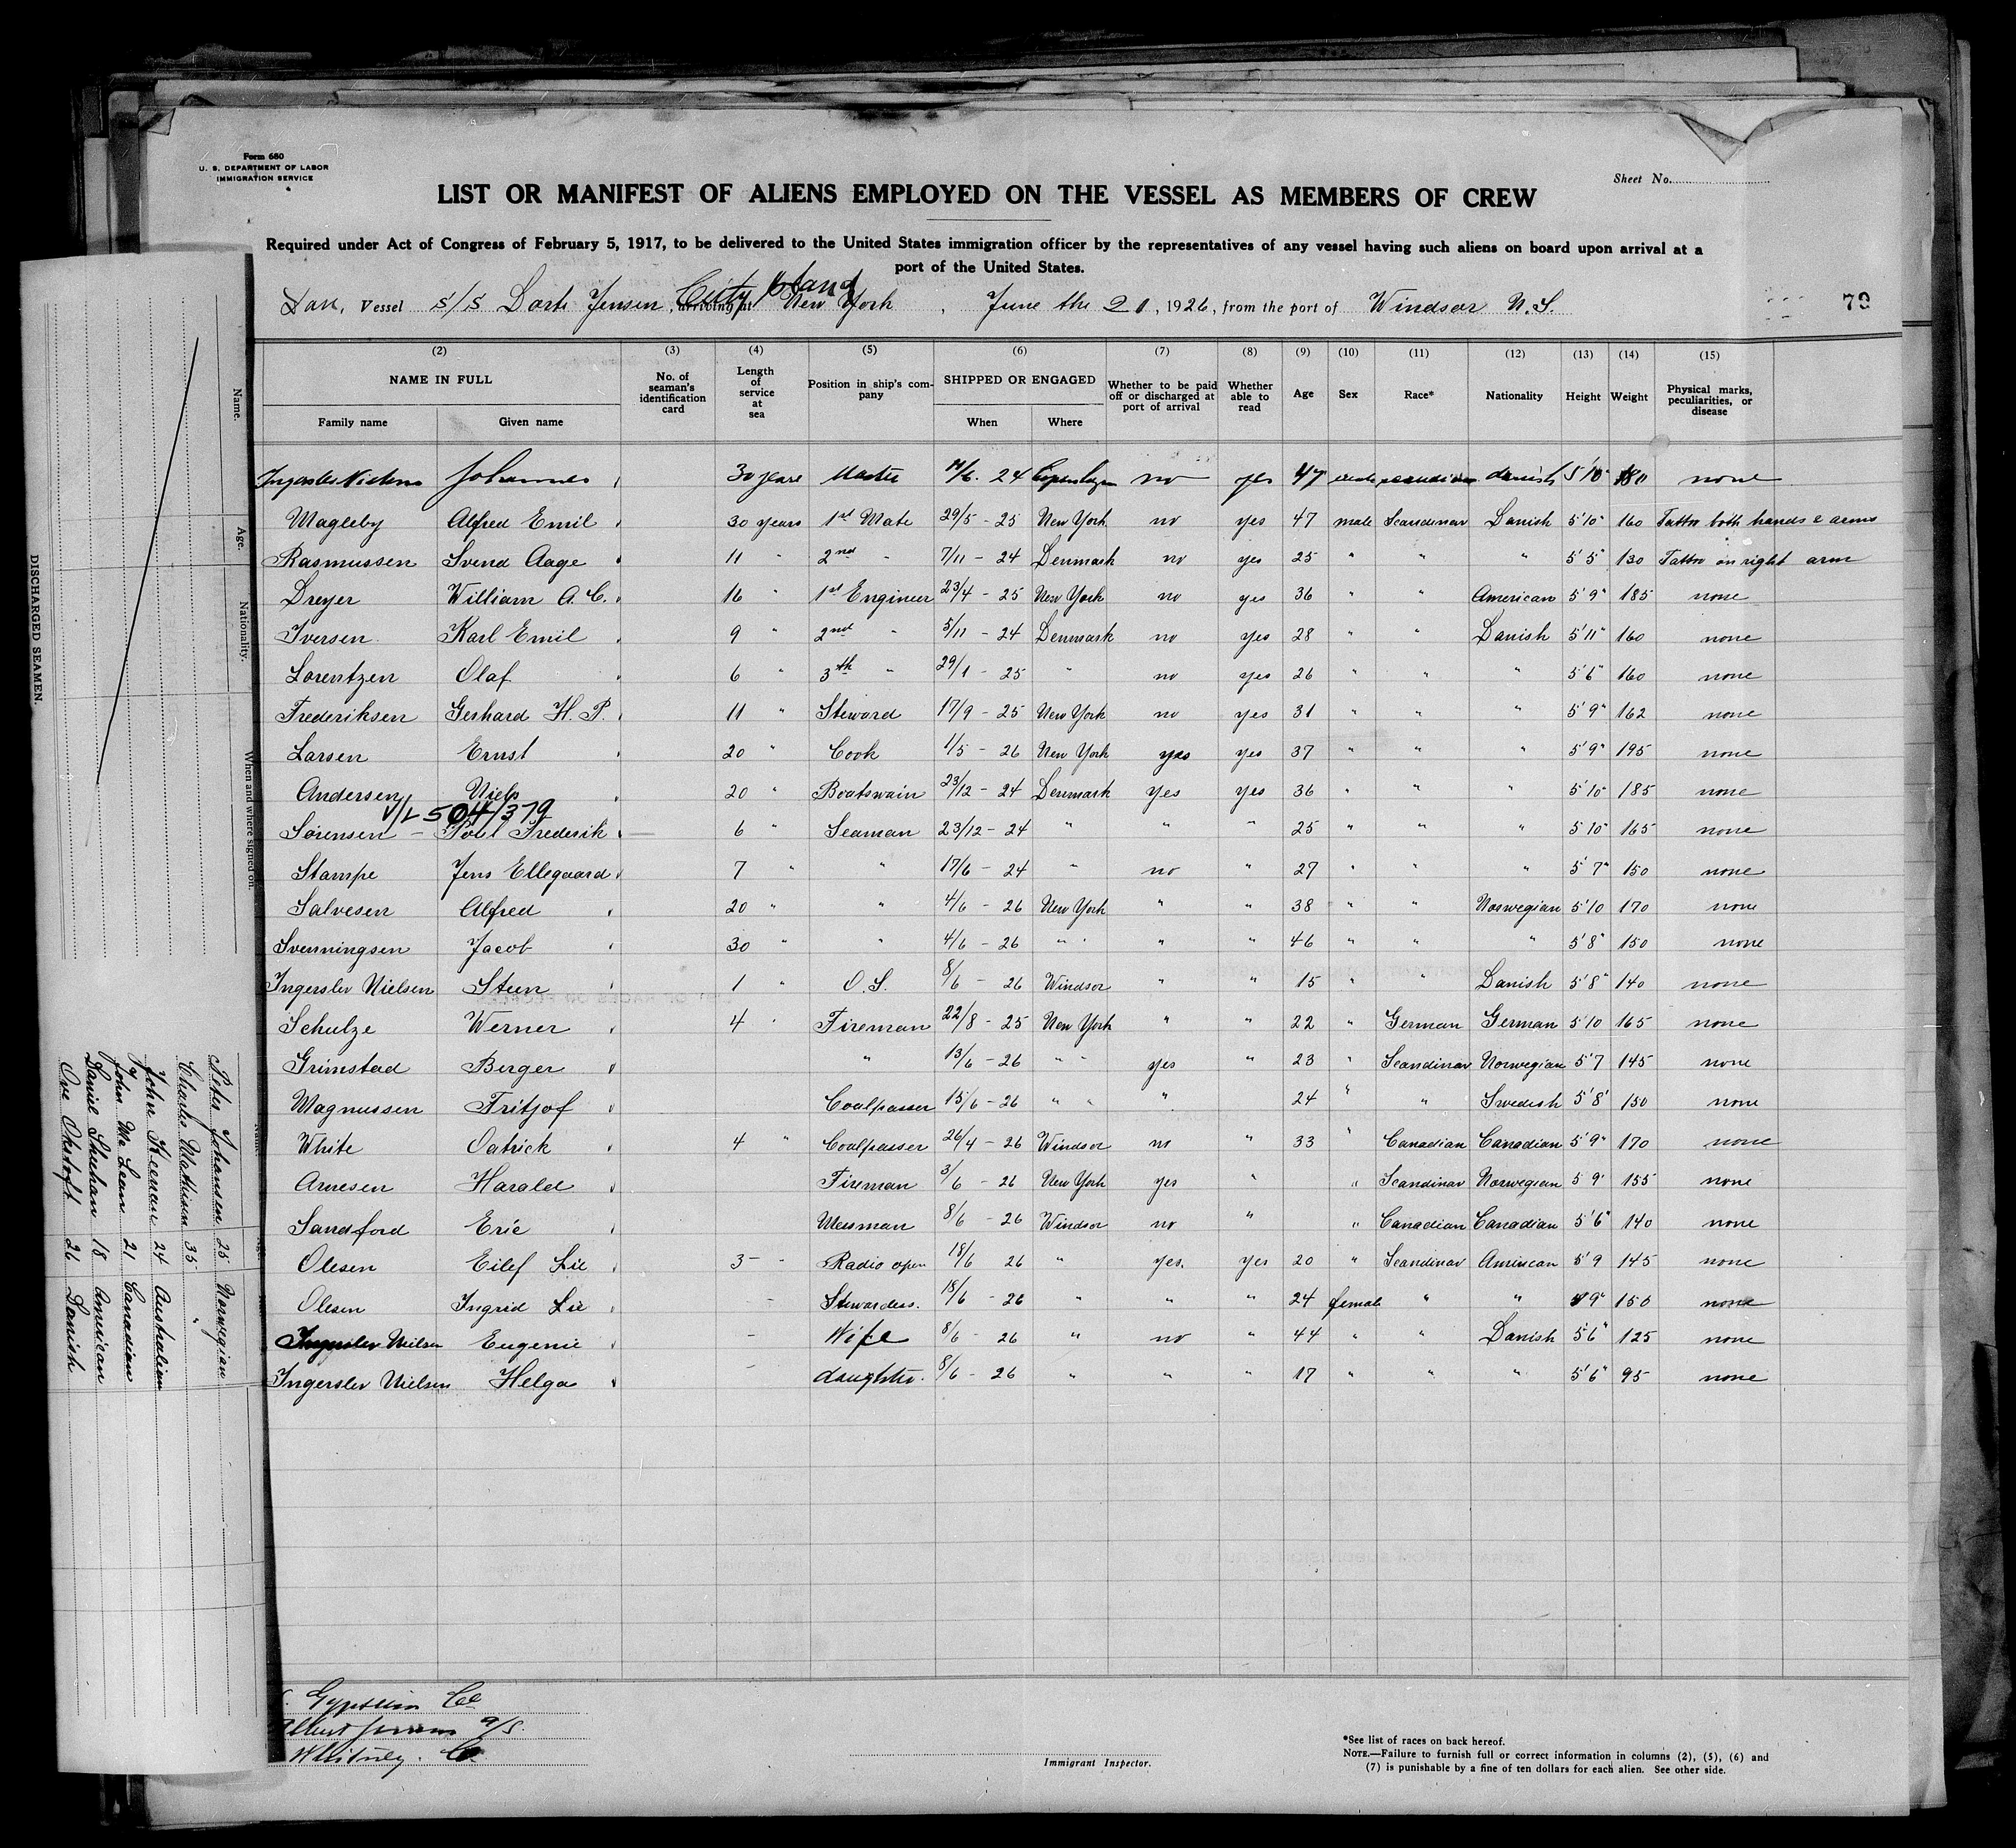 Form 680
U. S. DEPARTMENT OF LABOR
IMMIGRATION SERVICE
Sheet No.
LIST OR MANIFEST OF ALIENS EMPLOYED ON THE VESSEL AS MEMBERS OF CREW
Required under Act of Congress of February 5, 1917, to be delivered to the United States immigration officer by the representatives of any vessel having such aliens on board upon arrival at a
port of the United States.
Dan, Vessel S/S Dorte Jensen, arriving at City Island New York, June the 21, 1926, from the port of Windsor N.S. 79
(2) (3) (4) (5) (6) (7) (8) (9) (10) (11) (12) (13) (14) (15)
NAME IN FULL No. of seaman's identification card Length of service at sea Position in ship's company SHIPPED OR ENGAGED Whether to be paid off or discharged at port of arrival Whether able to read Age Sex Race* Nationality Height Weight Physical marks, peculiarities, or disease
Family name Given name When Where
Johannes 30 years Master 24 Copenhagen no yes 47 danish 5'10" 180 none
Magleby Alfred Emil 30 years 1st Mate 29/5 - 25 New York no yes 47 male Scandinav Danish 5'10" 160 Tattoo both hands & arms
Rasmussen Svend Aage 11 " 2nd " 7/11 - 24 Denmark no yes 25 " " " 5'5" 130 Tattoo on right arm
Dreyer William A.C. 16 " 1st Engineer 23/4 - 25 New York no yes 36 " " American 5'9" 185 none
Iversen Karl Emil 9 " 2nd " 5/11 - 24 Denmark no yes 28 " " Danish 5'11" 160 none
Lorentzen Olaf 6 " 3th " 29/1 - 25 " no yes 26 " " " 5'6" 160 none
Frederiksen Gerhard H. P. 11 " Steward 17/9 - 25 New York no yes 31 " " " 5'9" 162 none
Larsen Ernst 20 " Cook 1/5 - 26 New York yes yes 37 " " " 5'9" 195 none
Andersen Niels 20 " Boatswain 23/12 - 24 Denmark yes yes 36 " " " 5'10" 185 none
V/L 504/379
Sørensen - Poul Frederik 6 " Seaman 23/12 - 24 " " " 25 " " " 5'10" 165 none
Stampe Jens Ellegaard 7 " " 17/6 - 24 " no " 27 " " " 5'7" 150 none
Salvesen Alfred 20 " " 4/6 - 26 New York " " 38 " " Norwegian 5'10 170 none
Svenningsen Jacob 30 " " 4/6 - 26 " " " " 46 " " " 5'8" 150 none
Ingerslev Nielsen Steen 1 " O.S. 8/6 - 26 Windsor " " 15 " " Danish 5'8" 140 none
Schulze Werner 4 " Fireman 22/8 - 25 New York " " 22 " German German 5'10 165 none
Grimstad Berger " 13/6 - 26 " " yes " 23 " Scandinav Norwegian 5'7 145 none
Magnussen Fritjof Coalpasser 15/6 - 26 " " " 24 " " Swedish 5'8" 150 none
White Oatrick 4 " Coalpasser 26/4 - 26 Windsor no " 33 " Canadian Canadian 5'9" 170 none
Arnesen Harald Fireman 3/6 - 26 New York yes " " Scandinav Norwegian 5'9" 155 none
Sandford Eric Messman 8/6 - 26 Windsor no " " Canadian Canadian 5'6" 140 none
Olesen Eilef Lie 3 - " Radio oper 18/6 26 " yes. yes 20 " Scandinav American 5'9 145 none
Olesen Ingrid Lie - Stewardess. 18/6 - 26 " " " 24 female " " 9" 150 none
Ingerslev Nielsen Eugenie - Wife 8/6 - 26 " no " 44 " " Danish 5'6" 125 none
Ingerslev Nielsen Helga - daughter. 8/6 - 26 " " " 17 " " " 5'6" 95 none
Gypsum Co
Albert Jensen A/S.
Whitney. Co.
Immigrant Inspector.
*See list of races on back hereof.
NOTE.—Failure to furnish full or correct information in columns (2), (5), (6) and
(7) is punishable by a fine of ten dollars for each alien. See other side.
DISCHARGED SEAMEN.
Name. Age. Nationality. When and where signed on.
Peter Johansen 25 Norwegian
Charles Mathisen 35 "
John Keenan 24 Australian
John Mc Lean 21 Canadian
Daniel Sheehan 18 American
Ove Okstoft 26 Danish